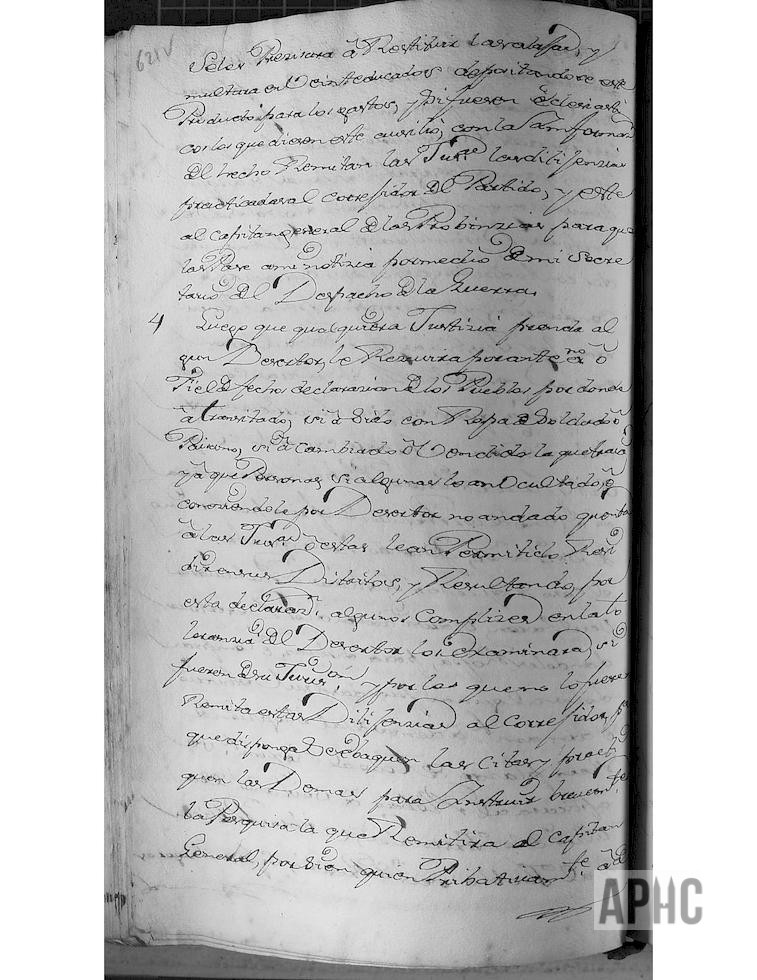 621v
Se les Prezisara â Restituir las alajas, y
multara en Cien ducados depositandose este
Producto para los gastos, y si fueren Eclesiasti
cos los que dieren este auxilio, con la Ynformazn
del hecho Remitan las Tuszas las dilijenzias
practicadas al corregidor del Partido, y este
al Capitan general de las Probinzias para que
las Pase a mi notizia por medio de mi Secre
tario del Despacho de la Guerra,
4 Luego que qualquiera Justizia prenda al
gun Desertor, le Rezivira por ante esno ô
Fiel de fechos declarazion de los Pueblos por donde
â transitado, si â Sido con Ropa de Soldado ô
Paisano, si â Cambiado ô Vendido la que traia
y â que Personas, si algunas lo an Ocultado, ô
conoziendole por Desertor no an dado quenta
â las Juszas ô estas le an Permitido Resi
dir en sus Distritos, y Resultando, por
esta declarazn algunos Complizes en la to
leranzia del Desertor los examinara, si
fueren de su Jurison, y por los que no lo fueren
Remita estas Dilijenzias al Corregidor, pa
que disponga Se ebaquen las Citas y practi
quen las Demas para Ynstruir brevemte
la Pesquisa la que Remitira al Capitan
General, por Sien quien Pribativamte
APHC